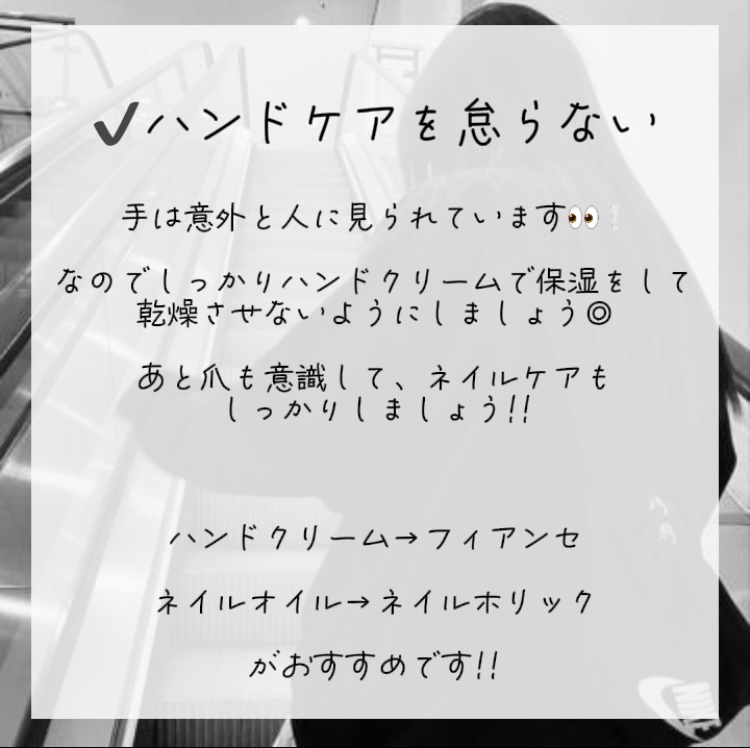 ✔ハンドケアを怠らない
手は意外と人に見られています👀❕
なのでしっかりハンドクリームで保湿をして
乾燥させないようにしましょう◎
あと爪も意識して、ネイルケアも
しっかりしましょう!!
ハンドクリーム→フィアンセ
ネイルオイル→ネイルホリック
がおすすめです!!